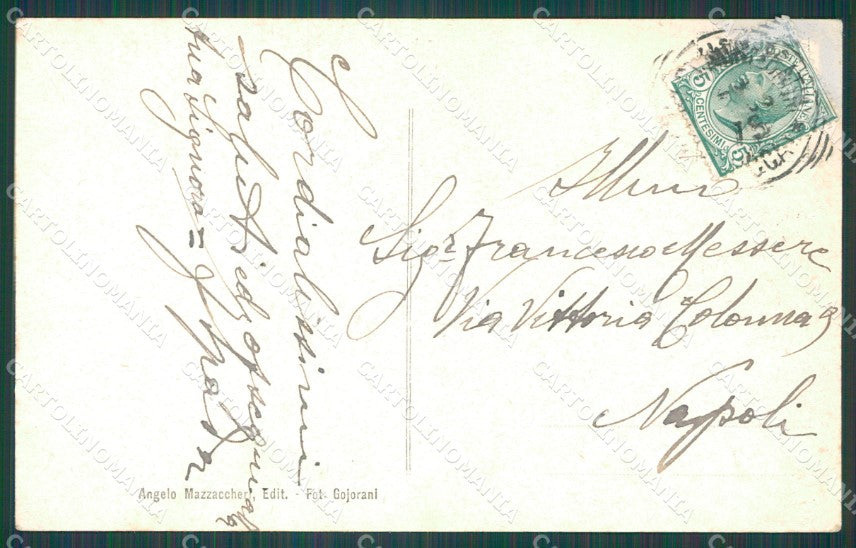 Cordialissimi
saluti ed ossequi alla
tua Signora =
Illmo
Sigr Francesco Messere
Via Vittoria Colonna 9
Napoli
5 CENTESIMI 5
Angelo Mazzaccheri, Edit. - Fot. Gojorani
CARTOLINOMANIA